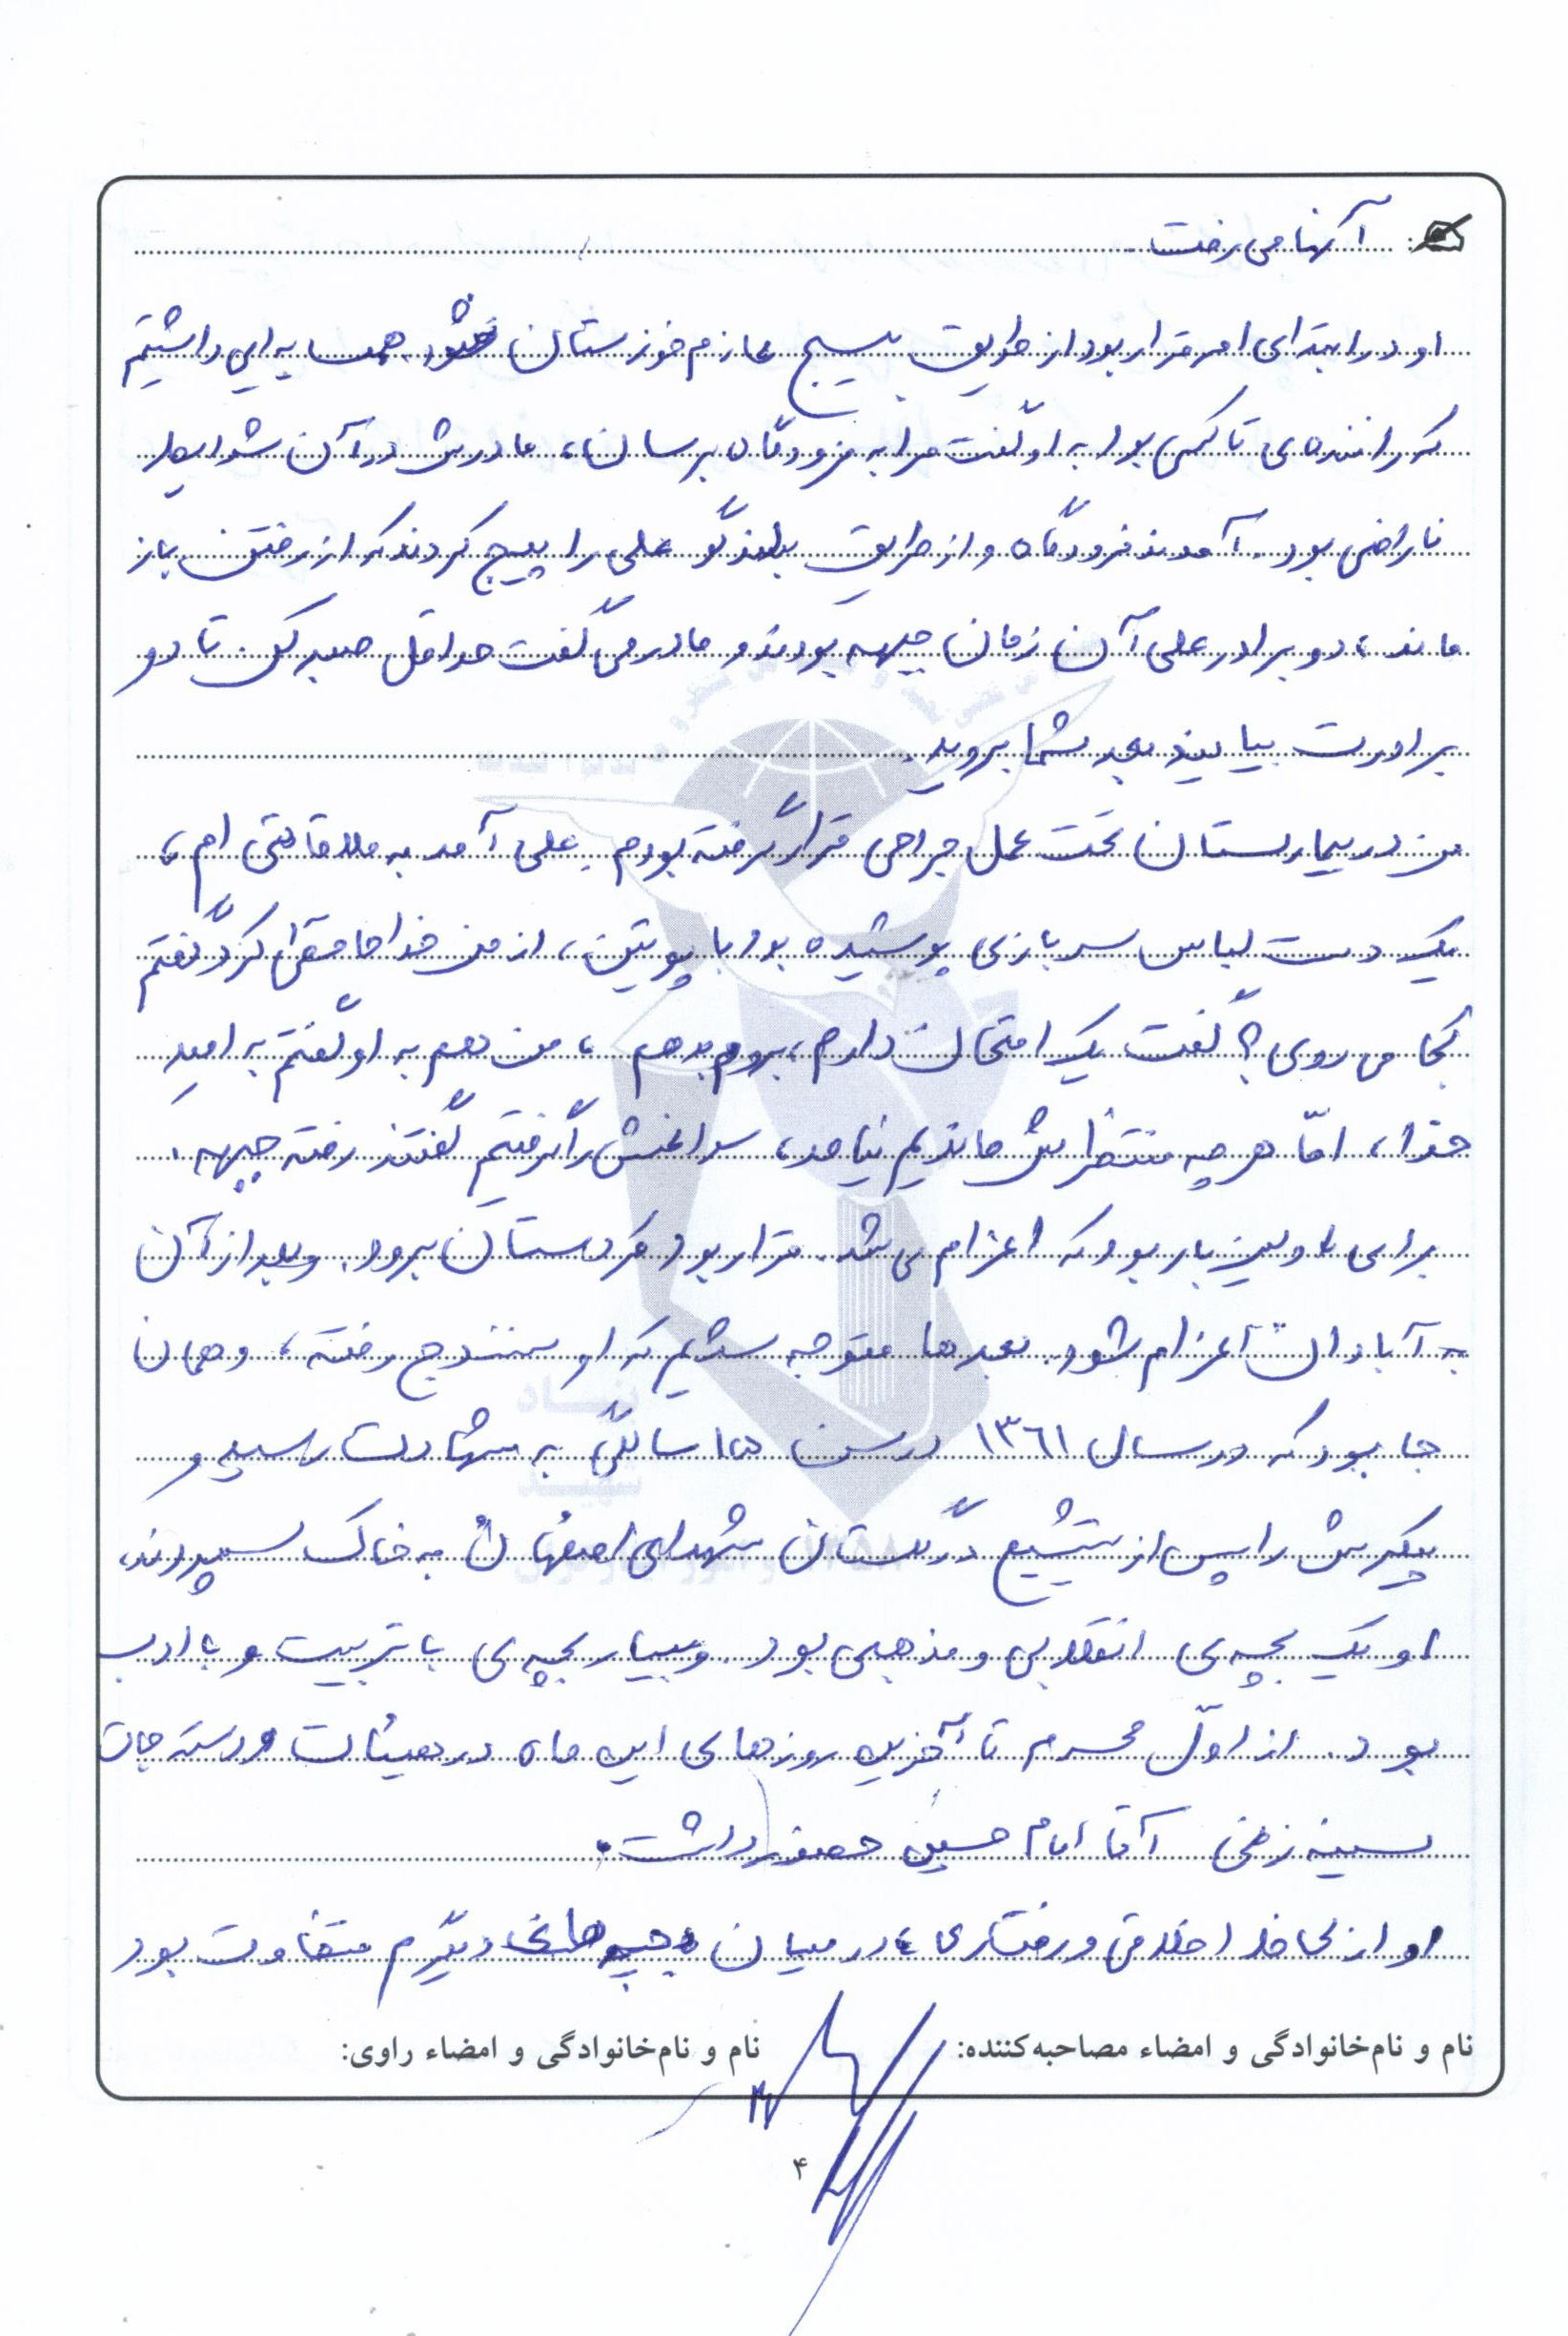 آنها می رفت.
او در ابتدای امر قرار بود از طریق بسیج عازم خوزستان شود. همسایه ایی داشتیم
که راننده ی تاکسی بود به او گفت مرا به فرودگاه برسان، مادرش در آن شرایط
ناراضی بود. آمدند فرودگاه و از طریق بلندگو علی را پیج کردند که از رفتن باز
ماند، دو برادر علی آن زمان جبهه بودند و مادر می گفت حداقل صبر کن تا دو
برادرت بیایند بعد شما بروید.
من در بیمارستان تحت عمل جراحی قرار گرفته بودم. علی آمد به ملاقاتی ام،
یک دست لباس سربازی پوشیده بود با پوتین، از من خداحافظی کرد گفتم
کجا می روی؟ گفت یک امتحان دارم، بروم بدهم، من هم به او گفتم به امید
خدا، امّا هر چه منتظرش ماندیم نیامد، سراغش را گرفتیم گفتند رفته جبهه.
برای اولین بار بود که اعزام می شد. قرار بود کردستان برود. و بعد از آن
به آبادان اعزام شود. بعدها متوجه شدیم که او سنندج رفته، و همان
جا بود که در سال ۱۳۶۱ در سن ۱۵ سالگی به شهادت رسید و
پیکرش را پس از تشییع در گلستان شهدای اصفهان به خاک سپردند.
او یک بچه ی انقلابی و مذهبی بود. و بسیار بچه ی با تربیت و با ادب
بود. از اوّل محرم تا آخرین روزهای این ماه در هیئات و دسته جات
سینه زنی آقا امام حسین حضور داشت.
او از لحاظ اخلاقی و رفتاری، در میان بچه های دیگرم متفاوت بود
نام و نام‌خانوادگی و امضاء مصاحبه‌کننده: نام و نام‌خانوادگی و امضاء راوی:
۴